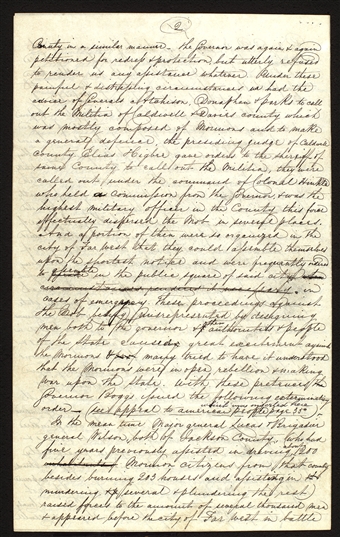 2
County in a similar manner. The Governor was again & again
petitioned for redress & protection but utterly refused
to render us any assistance whatever. Under these
painful & distressing circumstances we had the
advice of Generals Atchison, Donaphen & Parks to call
out the Militia of Caldwell & Daviess county which
was mostly composed of Mormons and to make
a general defence, the presiding judge of Caldwell
County Elias Higbee gave orders to the sheriff of
said County to call out the Militia, they were
called out under the command of Colonel Hinkle
who held a Commission from the Governor & was the
highest military officer in the County this force
effectually dispersed the Mob in several places,
a portion of them were so organized in the
city of Far West that they could assemble themselves
upon the shortest notice and were frequently
in the public square of said city
in
cases of emergency. These proceedings against
the Mob being misrepresented by designing
men both to the governor & other authorities & people
of the State caused great excitement against
the Mormons many tried to have it understood
that the Mormons were in open rebellion & making
war upon the State. With these pretences the
Governor Boggs issued the following exterminating
order — (see appeal to american people page 38.
In the mean time Major general Lucas & Brigadier
general Wilson, both of Jackson County, (who had
five years previously assisted in driving about 1200
inhabitants Mormon citizens from that county
besides burning 203 houses and assisting in
murdering several & plundering the rest)
raised forces to the amount of several thousand men
& appeared before the city of Far West in battle